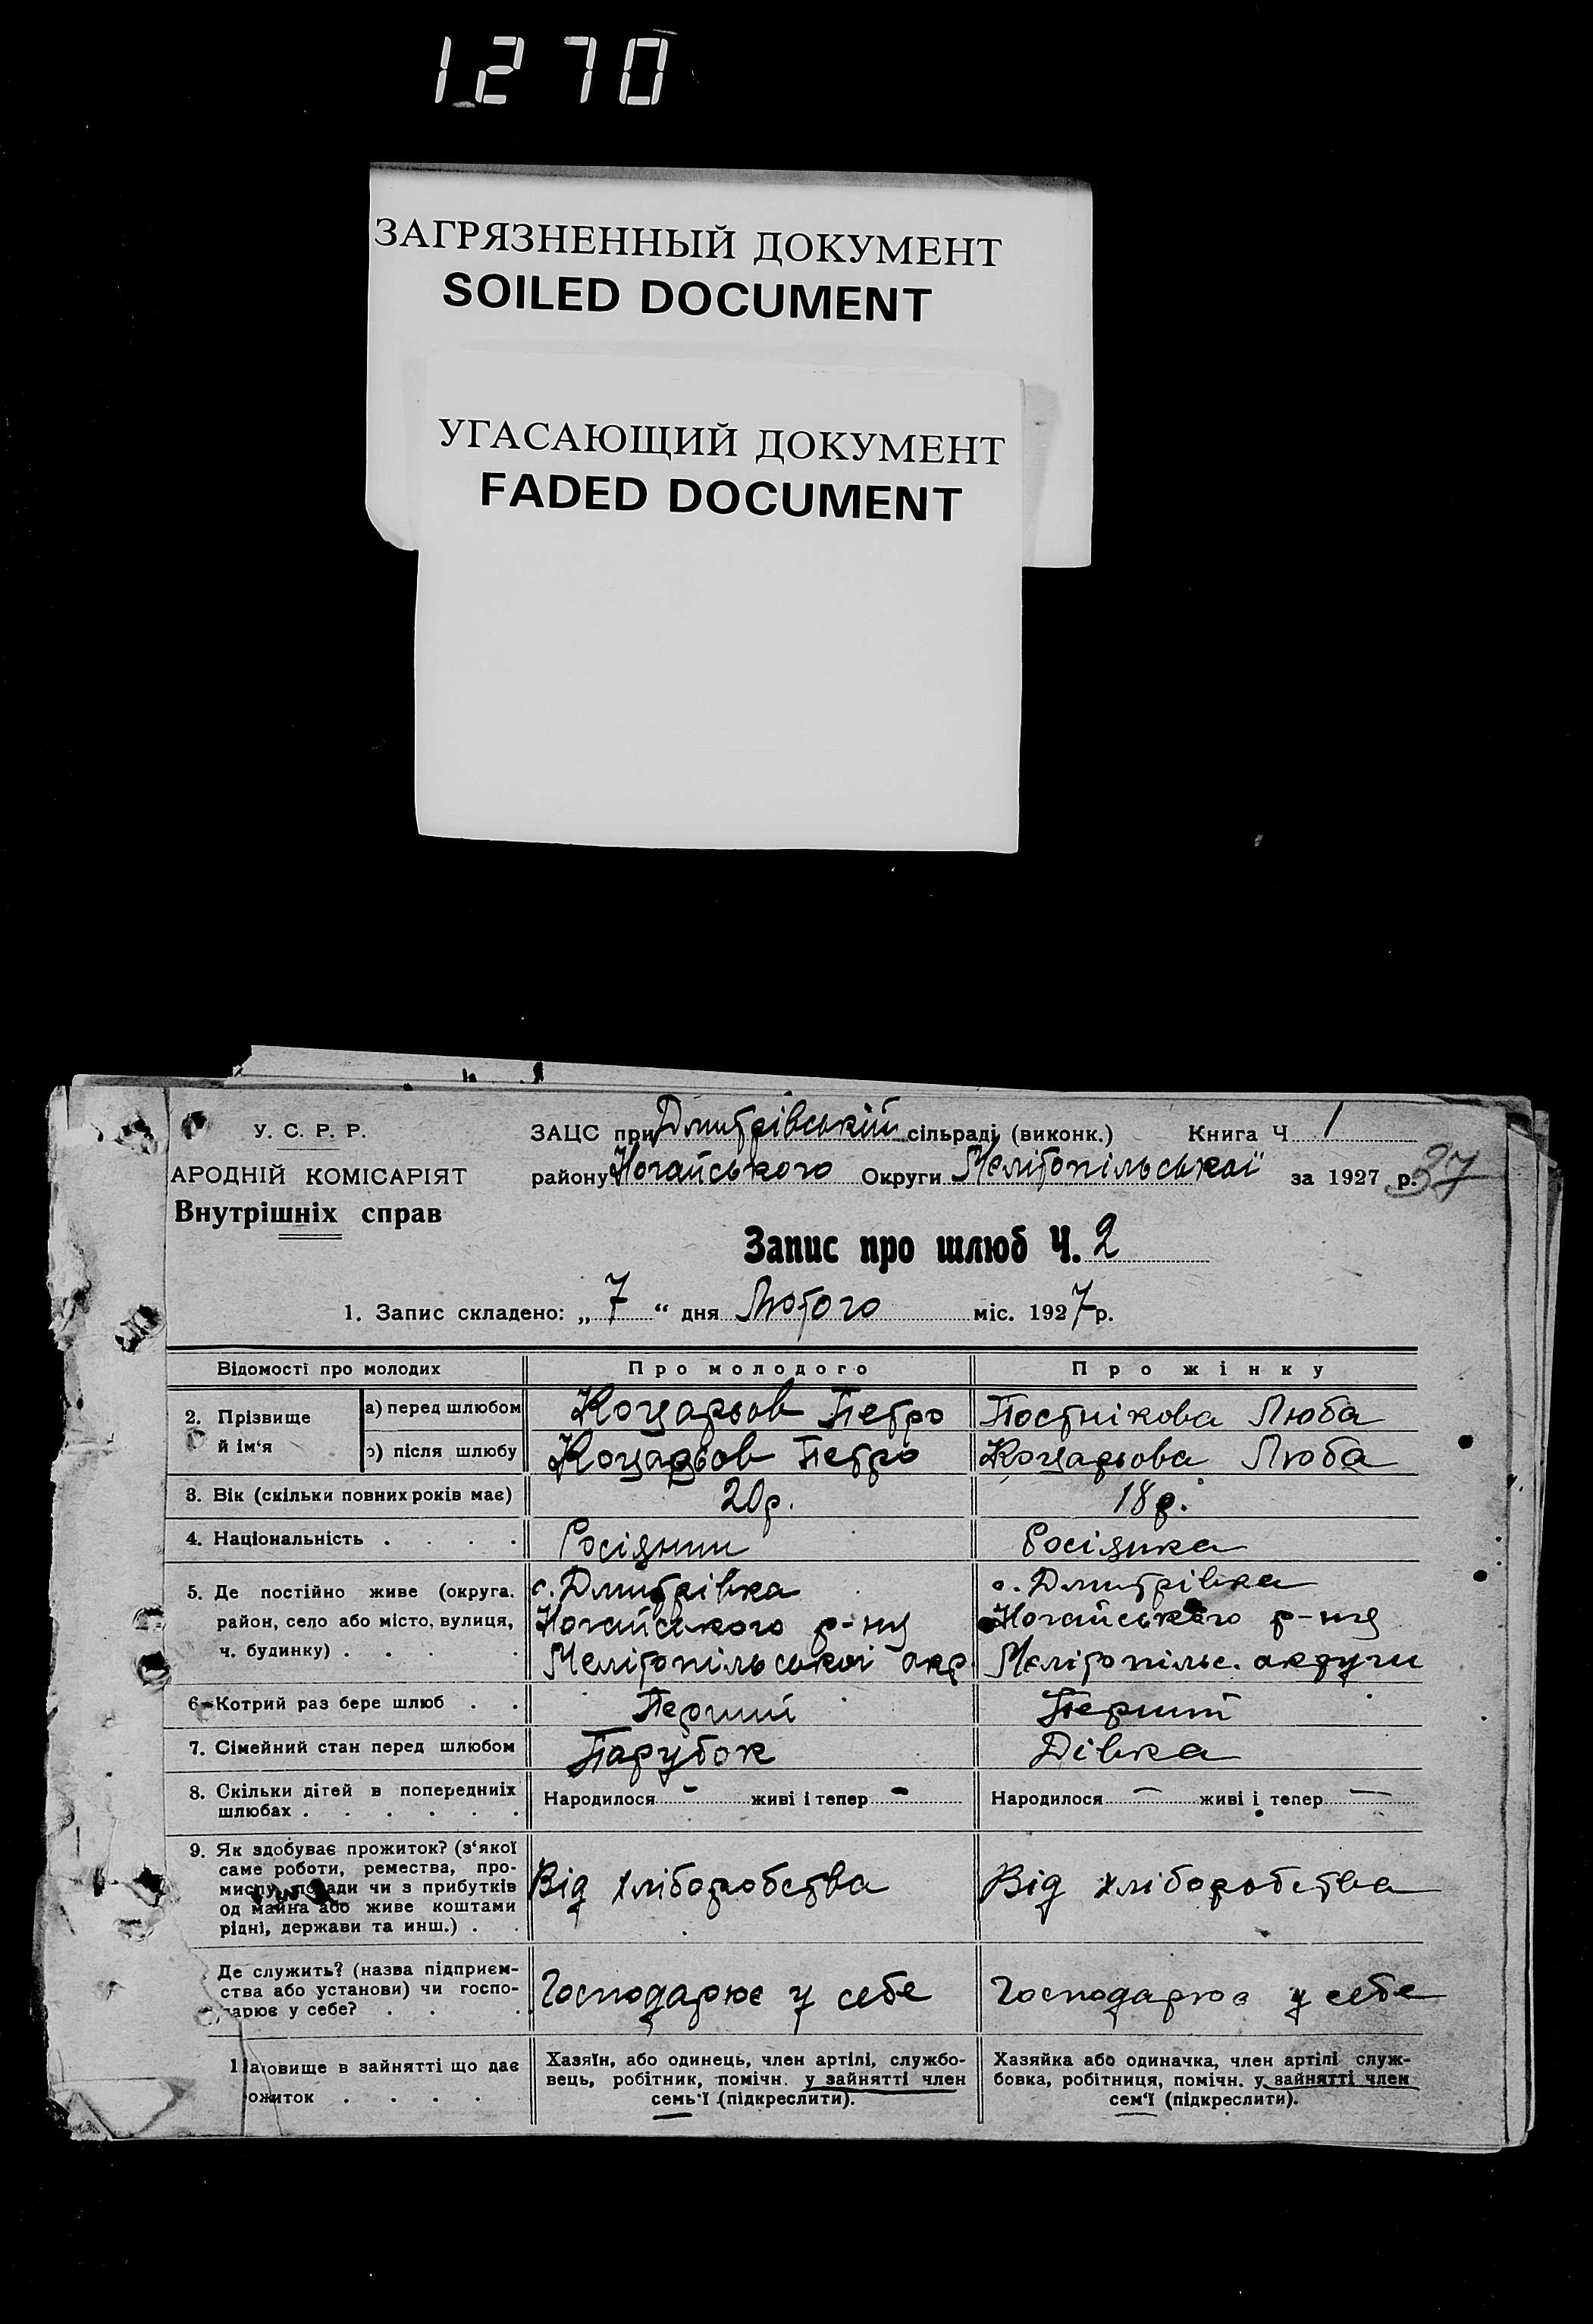 1270
ЗАГРЯЗНЕННЫЙ ДОКУМЕНТ
SOILED DOCUMENT
УГАСАЮЩИЙ ДОКУМЕНТ
FADED DOCUMENT
У. С. Р. Р.
АРОДНІЙ КОМІСАРІЯТ
Внутрішніх справ
ЗАЦС при Дмитрівській сільраді (виконк.) Книга Ч 1
району Ногайського Округи Мелітопільської за 1927 р. 37
Запис про шлюб Ч. 2
1. Запис складено: „ 7 “ дня Лютого міс. 1927 р.
Відомості про молодих Про молодого Про жінку
2. Прізвище й ім‘я
а) перед шлюбом Коцарьов Петро Постнікова Люба
) після шлюбу Коцарьов Петро Коцарьова Люба
3. Вік (скільки повних років має) 20 р. 18 р.
4. Національність . . . . Росіянин Росіянка
5. Де постійно живе (округа, с. Дмитрівка с. Дмитрівка
район, село або місто, вулиця, Ногайського р-ну Ногайського р-ну
ч. будинку) . . . . Мелітопільської окр. Мелітопільс. округи
6. Котрий раз бере шлюб . . Перший Перший
7. Сімейний стан перед шлюбом Парубок Дівка
8. Скільки дітей в попередниіх
шлюбах . . . . . . Народилося - живі і тепер - Народилося - живі і тепер -
9. Як здобуває прожиток? (з‘якої
саме роботи, ремества, про-
мислу, посади чи з прибутків Від хліборобства Від хліборобства
од майна або живе коштами
рідні, держави та инш.) . .
Де служить? (назва підприєм-
ства або установи) чи госпо- Господарює у себе Господарює у себе
дарює у себе? . . .
1 овище в зайнятті що дає
ожиток . . . .
Хазяїн, або одинець, член артілі, службо-
вець, робітник, помічн. у зайнятті член
семь‘ї (підкреслити).
Хазяйка або одиначка, член артілі служ-
бовка, робітниця, помічн. у зайнятті член
сем‘ї (підкреслити).